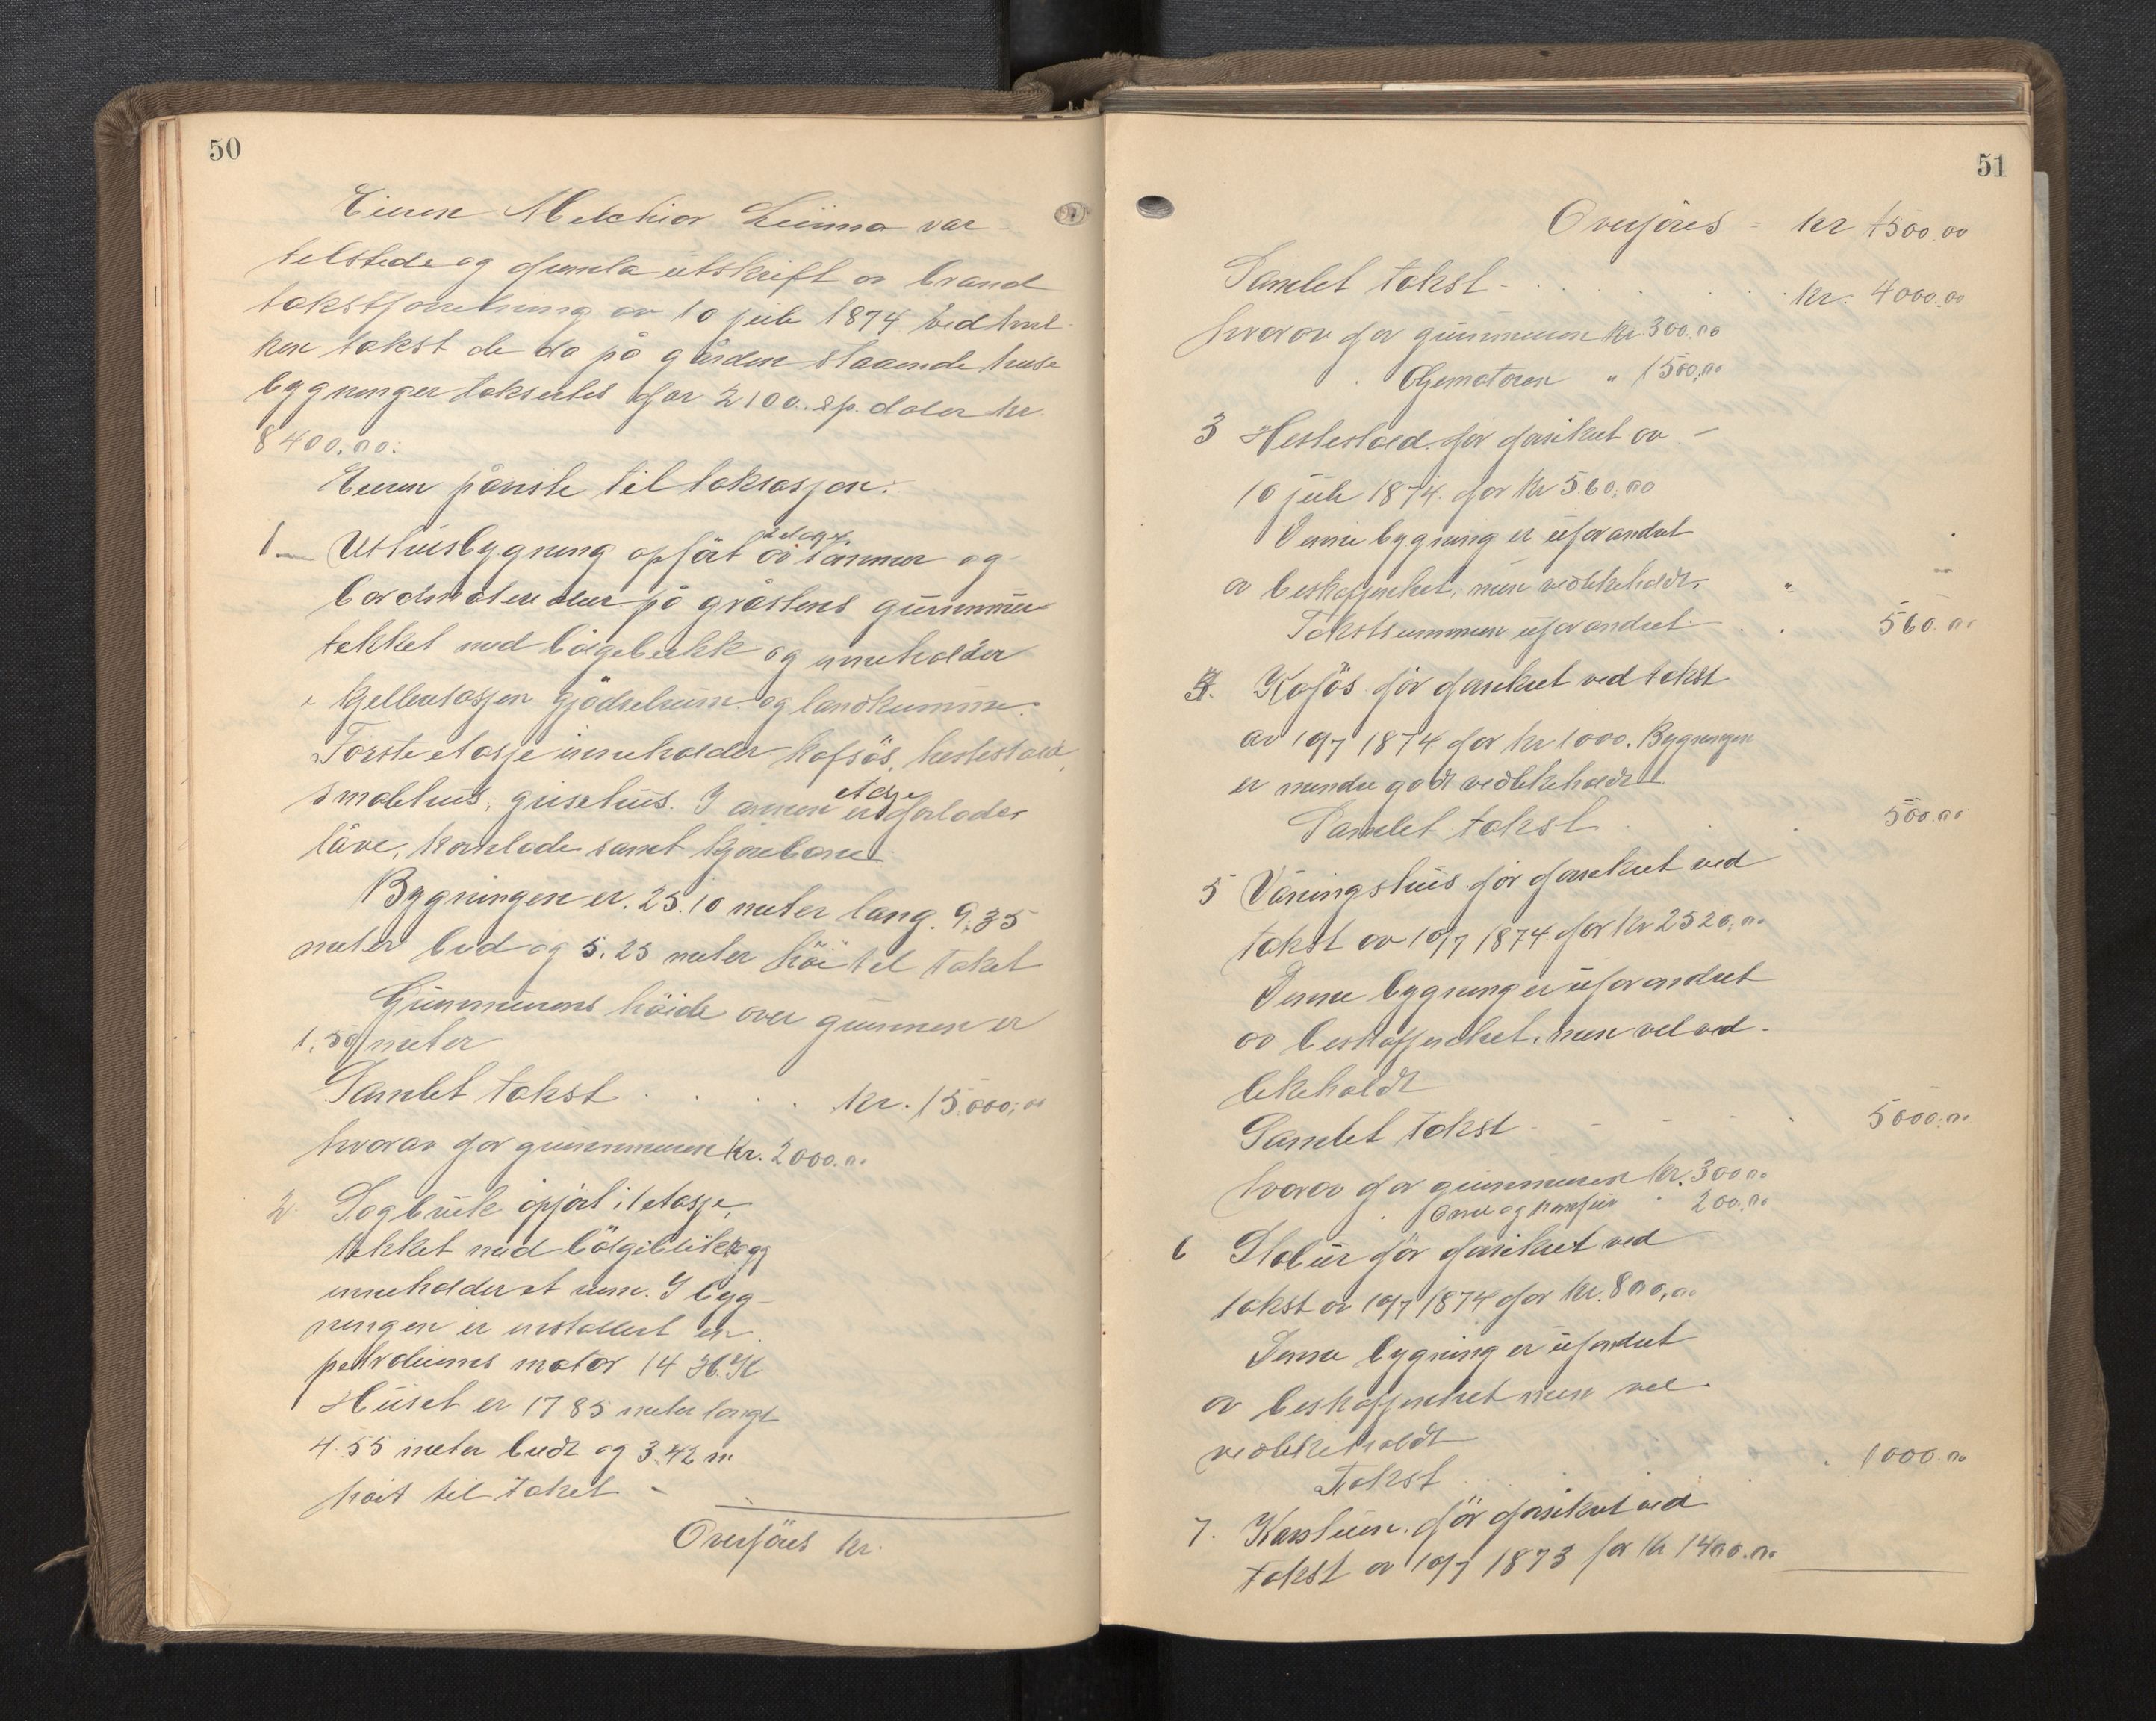 50
Eieren Melchior Leinna var
tilstede og fremla utskrift av brand
takstforretning av 10 juli 1874 ved hvil-
ken takst de da på gården staaende huse
bygninger taksertes for 2100 sp.daler kr
8400.00.
Eieren påviste til taksasjon:
1 Uthusbygning opført i 2 etasjer av tømmer og
bordmaterialer på gråstens grunnmur
tekket med bølgeblekk og inneholder
i kjelleretasjen gjødselrum og landkumme.
Første etasje inneholder kofjös, hestestald,
smalehus, grisehus. I annen etasje er forlader
låve, kornlade samt kjörebane
Bygningen er 25.10 meter lang. 9.35
meter bred og 5.25 meter höi til taket
Grunnmurens höide over grunnen er
1.50 meter
Samlet takst . . . . kr. 15.000.00
hvorav for grunnmuren kr. 2000.00
2. Sagbruk opfört i 1 etasje,
tekket med bölgeblikk og
inneholder et rum. I byg-
ningen er installert en
petroleums motor 14 H.K
Huset er 17 85 meter langt
4.55 meter bredt og 3.42 m
höit til taket -
Overföres kr.
51
Overföres = kr 1500.00
Samlet takst . . . . . kr. 4000.00
hvorav for grunnmuren kr 300.00
Oljemotoren " 1500.00
3 Hestestald för forsikret av -
10 juli 1874 for kr 560.00
Denne bygning er uforandret
av beskaffenhet, men vedlikeholdt. "
Takstsummen uforandret . . 560.00
4. Kofjös för forsikret ved takst
av 10/7 1874 for kr 1000. Bygningen
er mindre godt vedlikeholdt
Samlet takst . . . 500.00
5 Våningshus för forsikret ved
takst av 10/7 1874 for kr 2520.00
Denne bygning er uforandret
av beskaffenhet, men vel ved-
likeholdt
Samlet takst . . . 5000.00
hvorav for grunnmuren kr. 300.00
" 200.00
6 Stabur för forsikret ved
takst av 10/7 1874 for kr. 800.00
Denne bygning er uforandret
av beskaffenhet men vel
vedlikeholdt
Takst . . . 1000.00
7. för forsikret ved
takst av 10/7 1873 for kr 1400.00